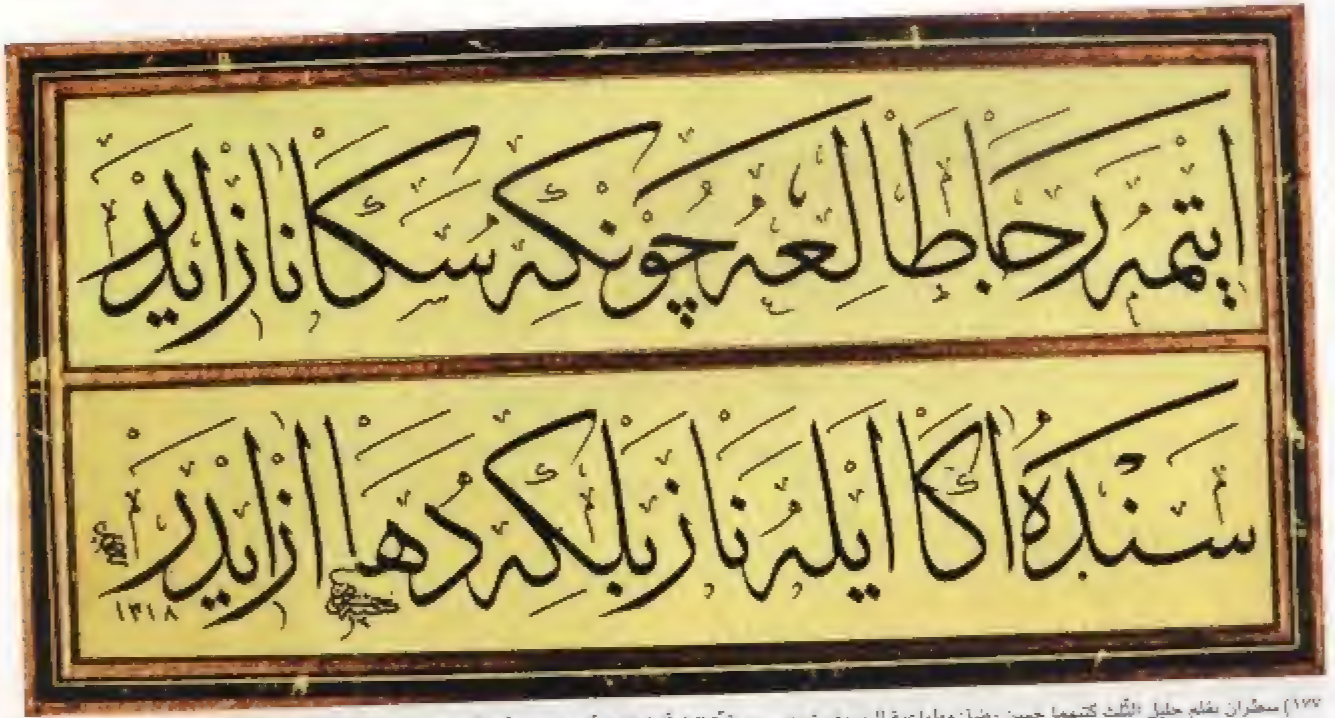 ايتمه رجا طالعه چونكه سكا ناز ايدر
سنده اكا ايله ناز بلكه دها از ايدر
١٣١٨
١٧٧) سطران بقلم جليل الثلث كتبهما حسين